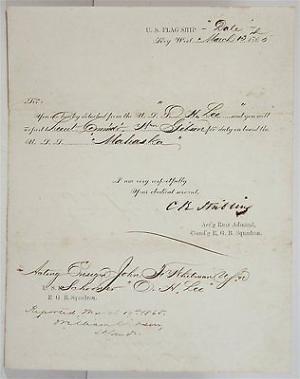 U. S. FLAG SHIP "Dale"
Key West March 18, 1865
Sir:
You are hereby detached from the U. S. S. "O. H. Lee" and you will
report Lieut. Comdr. Wm. Gibson for duty on board the
U. S. S. "Mahaska"
I am very respectfully
Your obedient servant,
C K Stribling
Act'g Rear Admiral,
Comd'g E. G. B. Squadron.
Acting Ensign John
U. S. Schooner O. H. Lee
E. G. B. Squadron.
Reported March 19th 1865.
William